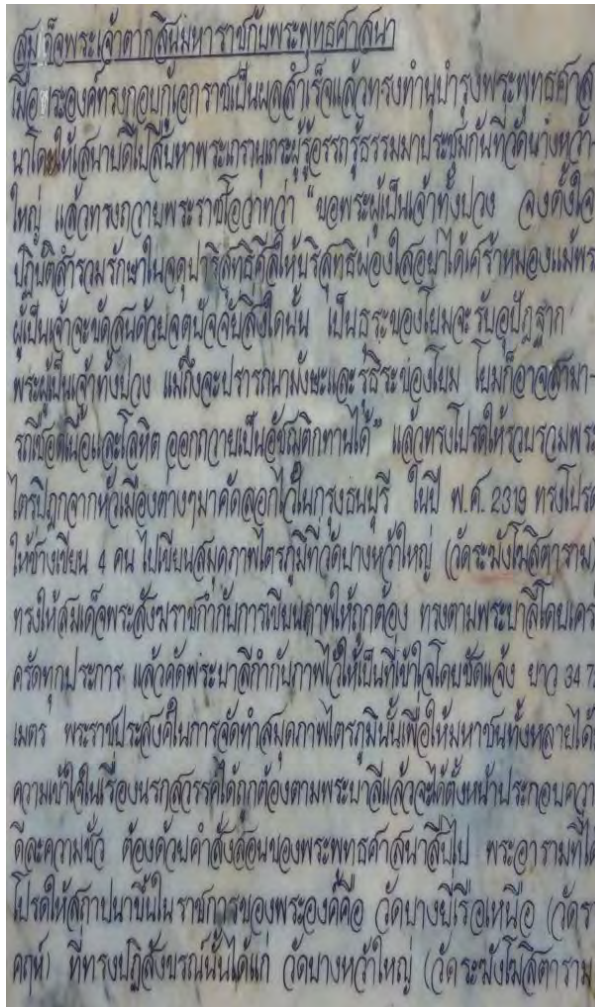 สมเด็จพระเจ้าตากสินมหาราชกับพระพุทธศาสนา
เมื่อพระองค์ทรงกอบกู้เอกราชเป็นผลสำเร็จแล้วทรงทำนุบำรุงพระพุทธศาส
นาโดยให้เสนาบดีไปสืบหาพระเถรานุเถระผู้รู้อรรถรู้ธรรมมาประชุมกันที่วัดบางหว้า-
ใหญ่ แล้วทรงถวายพระราชโอวาทว่า "ขอพระผู้เป็นเจ้าทั้งปวง จงตั้งใจ
ปฏิบัติสำรวมรักษาในจตุปาริสุทธิศีลให้บริสุทธิผ่องใสอย่าได้เศร้าหมองแม้พร
ผู้เป็นเจ้าจะขัดสนด้วยจตุปัจจัยสิ่งใดนั้น เป็นธุระของโยมจะรับอุปัฏฐาก
พระผู้เป็นเจ้าทั้งปวง แม้ถึงจะปรารถนามังษะและรุธิระของโยม โยมก็อาจสามา-
รถเชือดเนื้อและโลหิต ออกถวายเป็นอัชฌติกทานได้" แล้วทรงโปรดให้รวบรวมพระ
ไตรปิฎกจากหัวเมืองต่างๆมาคัดลอกไว้ในกรุงธนบุรี ในปี พ.ศ. 2319 ทรงโปรด
ให้ช่างเขียน 4 คน ไปเขียนสมุดภาพไตรภูมิที่วัดบางหว้าใหญ่ (วัดระฆังโฆสิตาราม)
ทรงให้สมเด็จพระสังฆราชกำกับการเขียนภาพให้ถูกต้อง ทรงตามพระบาลีโดยเคร่
ครัดทุกประการ แล้วคัดพระบาลีกำกับภาพไว้ให้เป็นที่เข้าใจโดยชัดแจ้ง ยาว 34.7
เมตร พระราชประสงค์ในการจัดทำสมุดภาพไตรภูมินั้นเพื่อให้มหาชนทั้งหลายได้
ความเข้าใจในเรื่องนรกสวรรค์ได้ถูกต้องตามพระบาลีแล้วจะได้ตั้งหน้าประกอบควา
ดีละความชั่ว ต้องด้วยคำสั่งสอนของพระพุทธศาสนาสืบไป พระอารามที่ได้
โปรดให้สถาปนาขึ้นในราชการของพระองค์คือ วัดบางยี่เรือเหนือ (วัดรา
คฤห์) ที่ทรงปฏิสังขรณ์นั้นได้แก่ วัดบางหว้าใหญ่ (วัดระฆังโฆสิตาราม